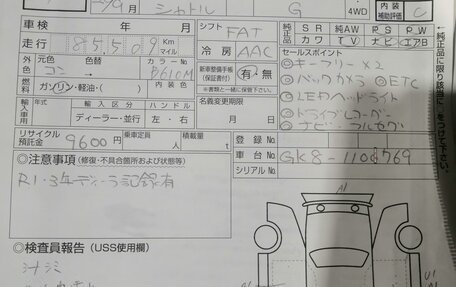 シャトル G 4WD 内装 補助評価 C
車検 年 月
シフト FAT
純正品 SR 純AW PS PW
カワ TV ナビ エアB
純正品に限り該当に○をつけて下さい。
走行 85,509 Km マイル
冷房 AAC
セールスポイント
外色 元色 色替 カラーNo B610M
コン 内装色
新車整備手帳(保証書付) 有・無
※書類と一緒に保管して下さい。
◎キーフリー×2
◎バックカメラ ◎ETC
◎LEDヘッドライト
◎ドライブレコーダー
◎ナビ フルセグ
燃料 ガソリン・軽油・( )
輸入車用 年式 輸入区分 ハンドル
ディーラー・並行 左・右
名義変更期限
月 日
リサイクル預託金 9600円
乗車定員 人
積載量 t
登録No
車台No GK8-1106769
シリアルNo
◎注意事項(修復・不具合箇所および状態等)
R1・3年ディーラー記録有
◎検査員報告(USS使用欄)
A1
U1